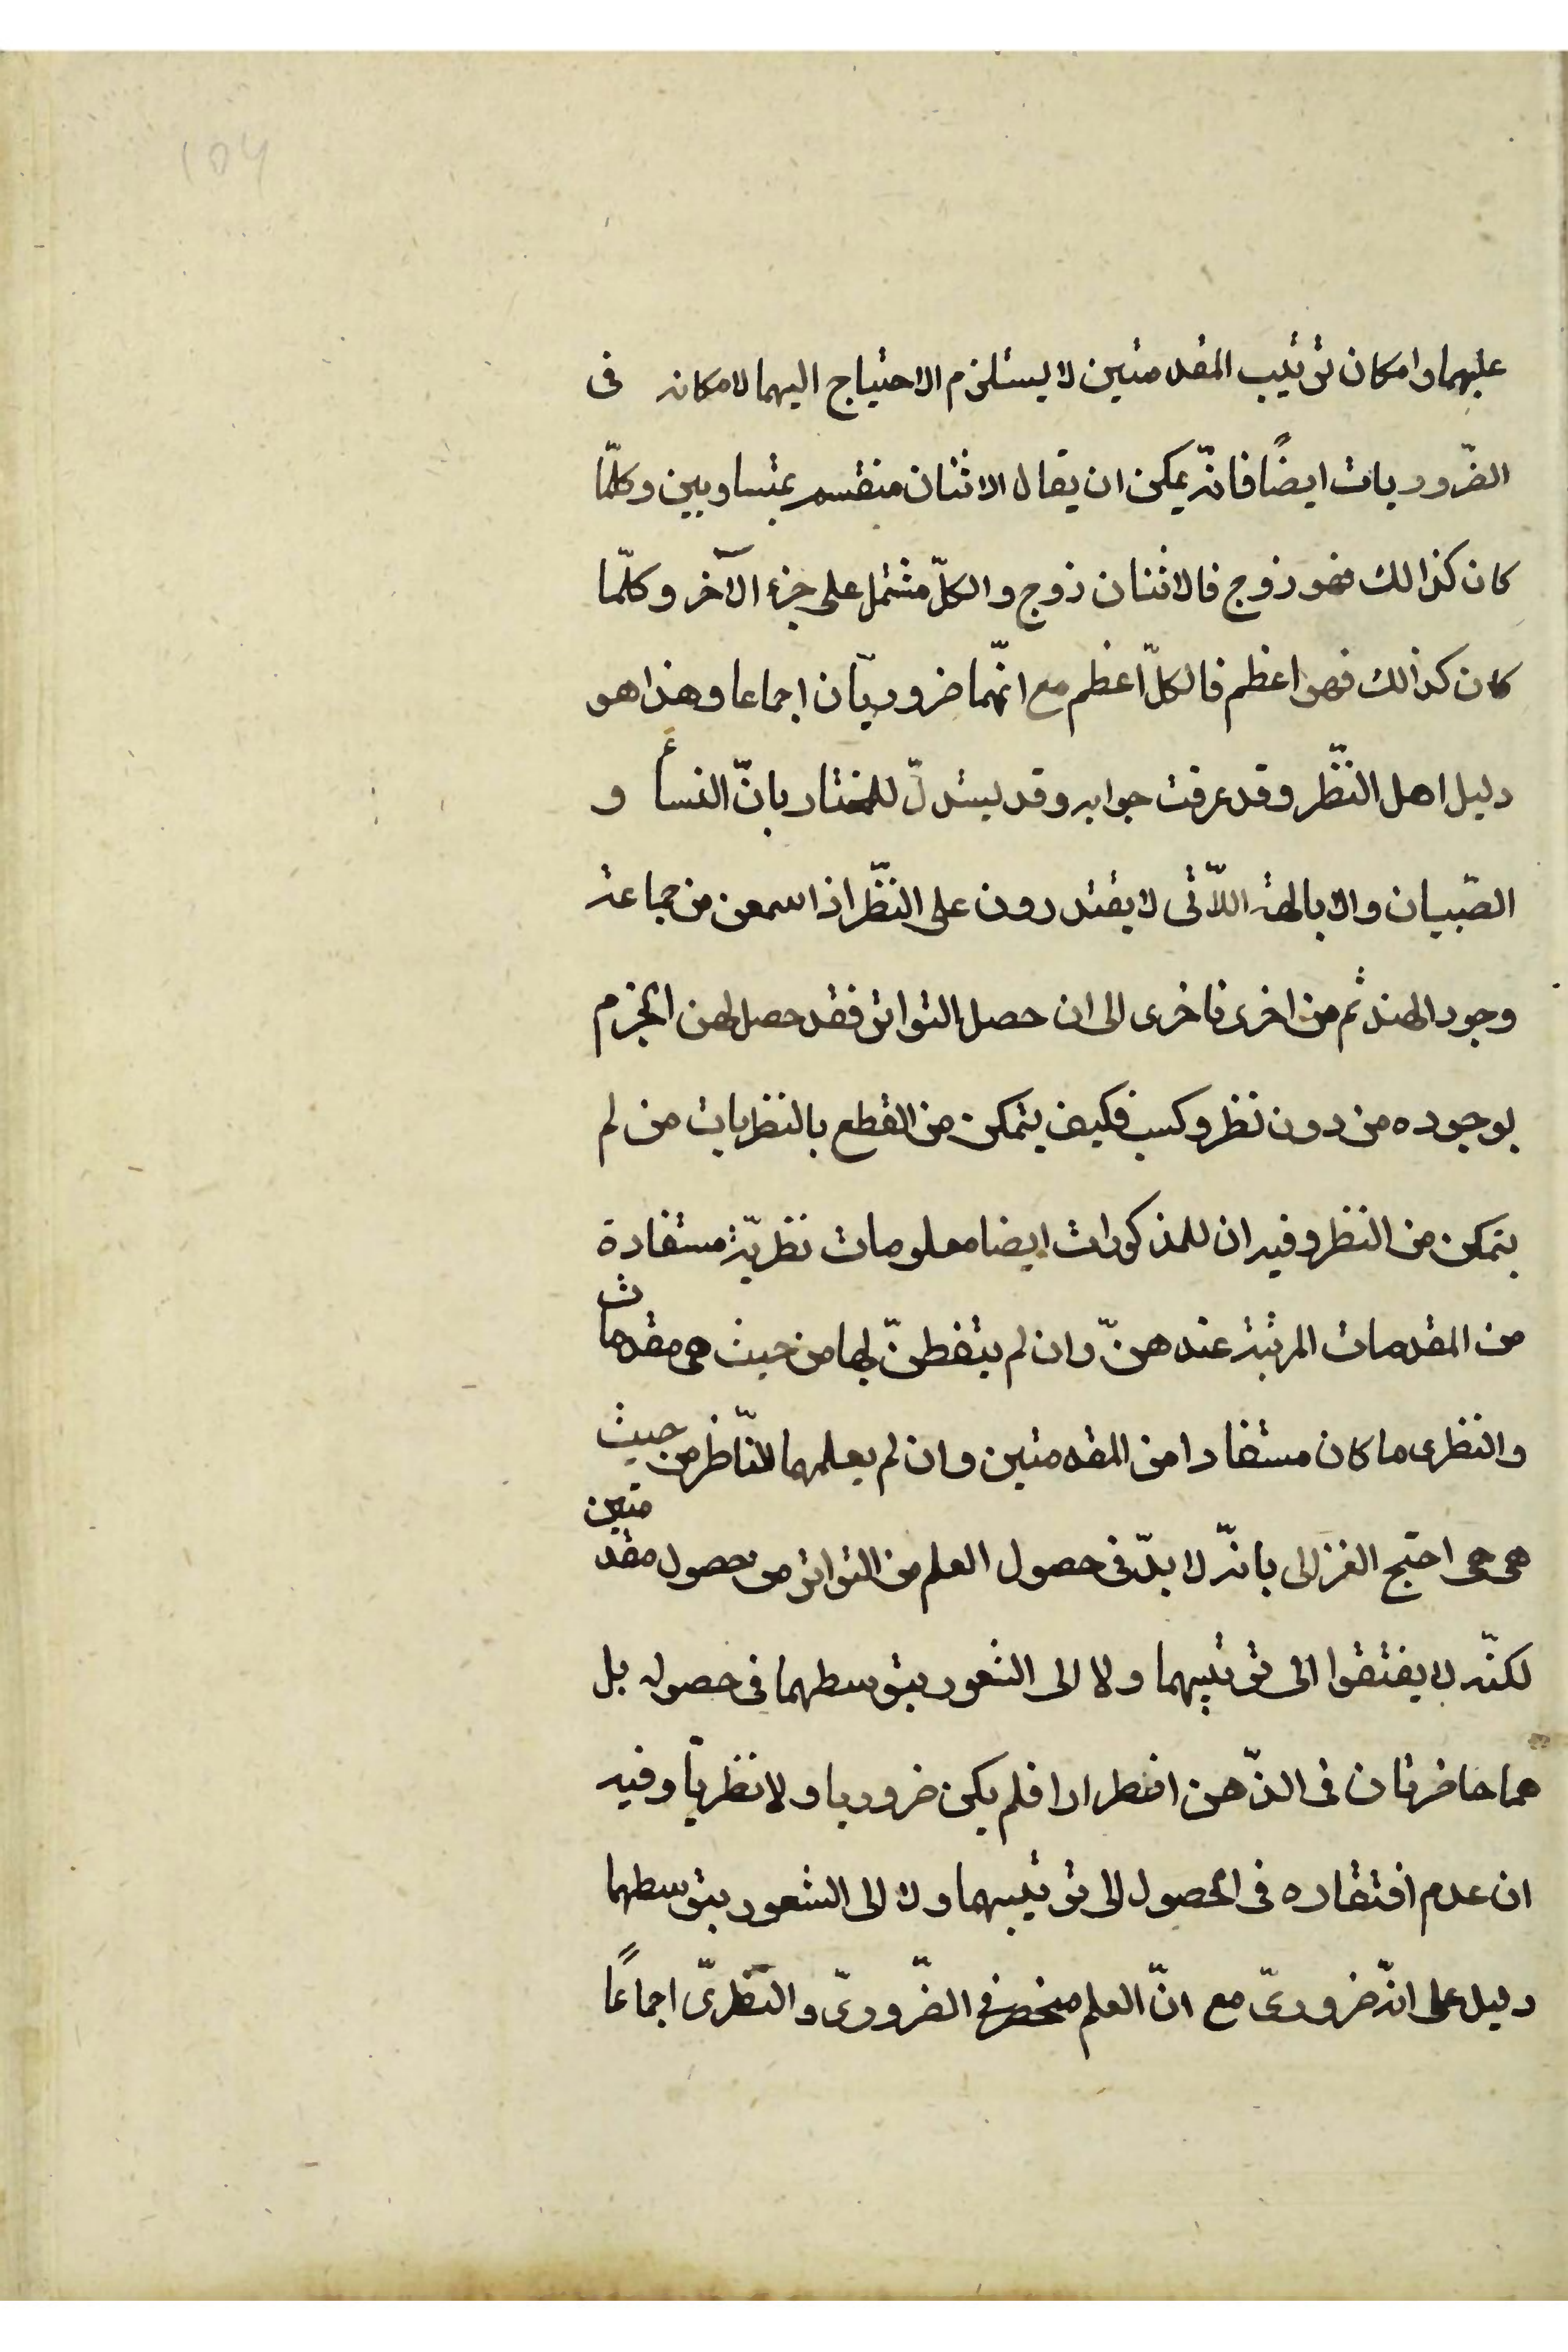 104
عليهما وامكان ترتيب المقدمتين لا يستلزم الاحتياج اليهما لامكانه فى
الضّروريات ايضًا فانّه يمكن ان يقال الاثنان منقسم بمتساويين وكلّما
كان كذالك فهو زوج فالاثنان زوج والكلّ مشتمل على جزء الآخر وكلّما
كان كذالك فهو اعظم فالكلّ اعظم مع انّهما ضروريّان اجماعا وهذا هو
دليل اهل النّظر وقد عرفت جوابه وقد يستدلّ للمختار بانّ النسأ و
الصّبيان والابالهة اللاّتى لا يقتدرون على النّظر اذا سمعن من جماعة
وجود الهند ثم من اخرى فاخرى الى ان حصل التواتر فقد حصل لهن الجزم
بوجوده من دون نظر وكسب فكيف يتمكن من القطع بالنظريات من لم
يتمكن من النظر وفيه ان للمذكورات ايضا معلومات نظريّة مستفادة
من المقدمات المرتبة عندهنّ وان لم يتفطنّ لها من حيث هى مقدمات
والنظرى ما كان مستفادا من المقدمتين وان لم يعلمهما النّاظر من حيث
هى هى احتج الغزالى بانّه لا بدّ فى حصول العلم من التواتر من حصول مقدمتين
لكنّه لا يفتقوا الى ترتيبهما ولا الى الشعور بتوسطهما فى حصوله بل
هما حاضرتان فى الذّهن اضطرارا فلم يكن ضروريا ولا نظريّا وفيه
ان عدم افتقاره فى الحصول الى ترتيبهما ولا الى الشعور بتوسطهما
دليل على انّه ضرورىّ مع انّ العلم منحصر فى الضّرورىّ والنّظرىّ اجماعًا